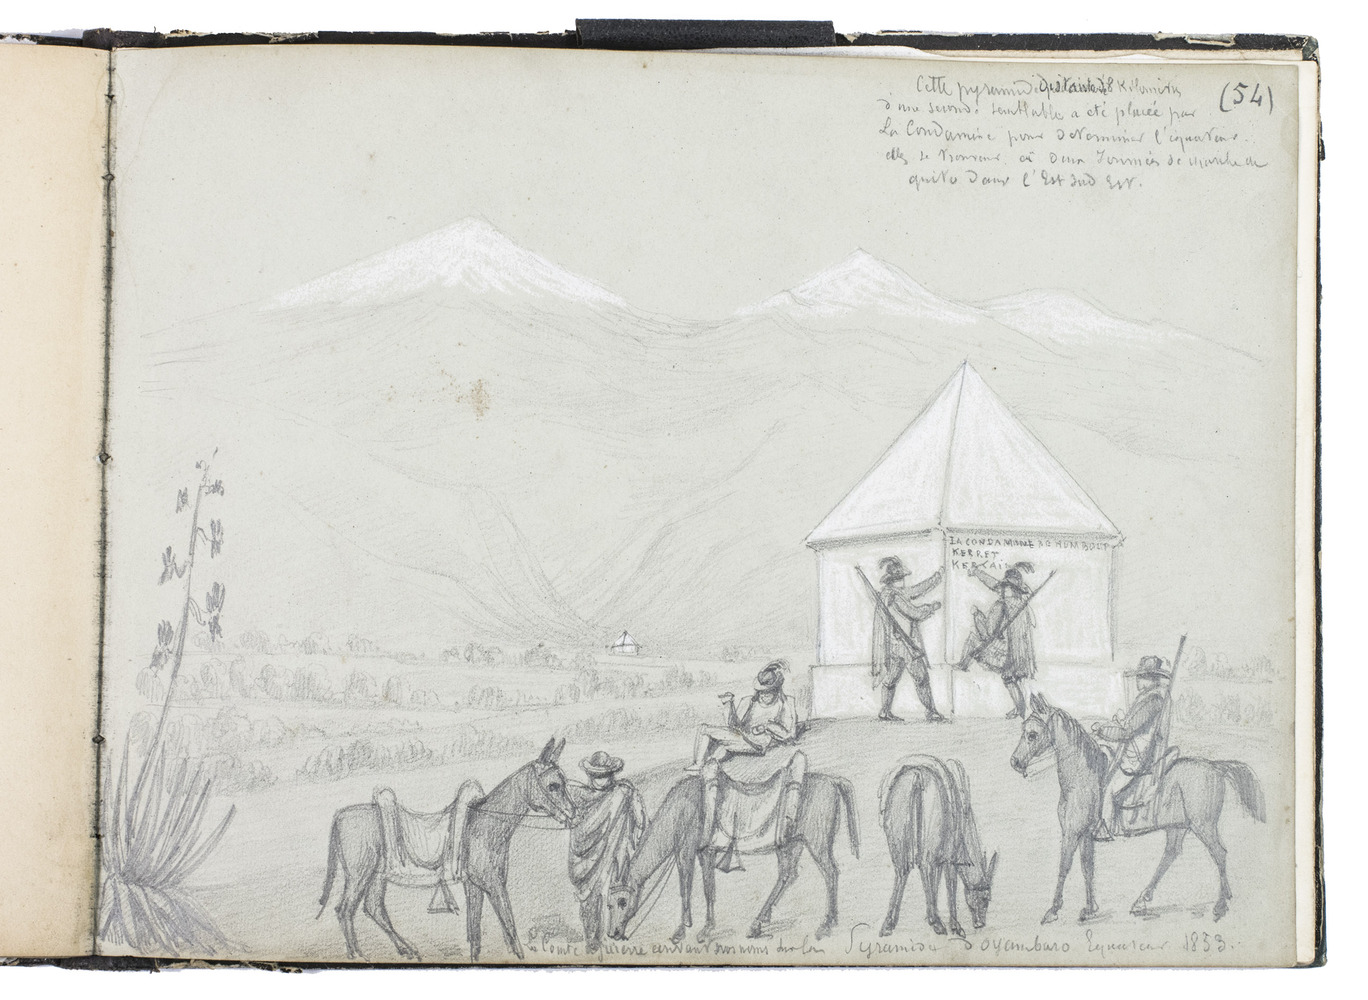 Cette pyramide distante 8 Kilometres
(54)
d'une seconde semblable a eté placée par
La Condamine pour determiner l'équateur.
elles se trouvent à deux journées de marche de
quito dans l'Est Sud Est.
LA CONDAMINE DE HUMBOLT
KERRET
Comte gravant nos noms sur la Pyramide d'oyambaro Equateur 1853.